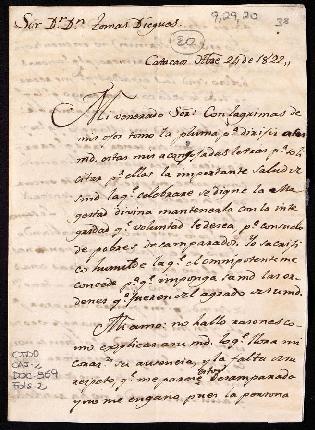 Sor Dr Dn Tomas Dieguez.
9,29,20
38
(20)
Catacaos Obre 24 de 1822,,
Mi venerado Sor: Con lagrimas de
mis ojos tomo la pluma pa dirijir a
md. estas mis acongojadas letras pa soli
citar pr ellos la importante salud de
md la qe celebrare se digne la Ma
gestad divina mantenersela con la inte
gridad qe voluntad le desea pa consuelo
de pobres desamparados. lo sacrifi
co humilde la qe el omnipotente me
concede pa qe imponga tand las or
denes qe fueren del agrado de su md.
Ah amo: no hallo rasones co
mo explicar a su md. lo qe llora mi
coran su ausencia, y la falta de su
respeto, qe me parece estoy desamparado
y no me engaño, pues la persona
CTDO
CAJ-2
DOC-969
Fols-2